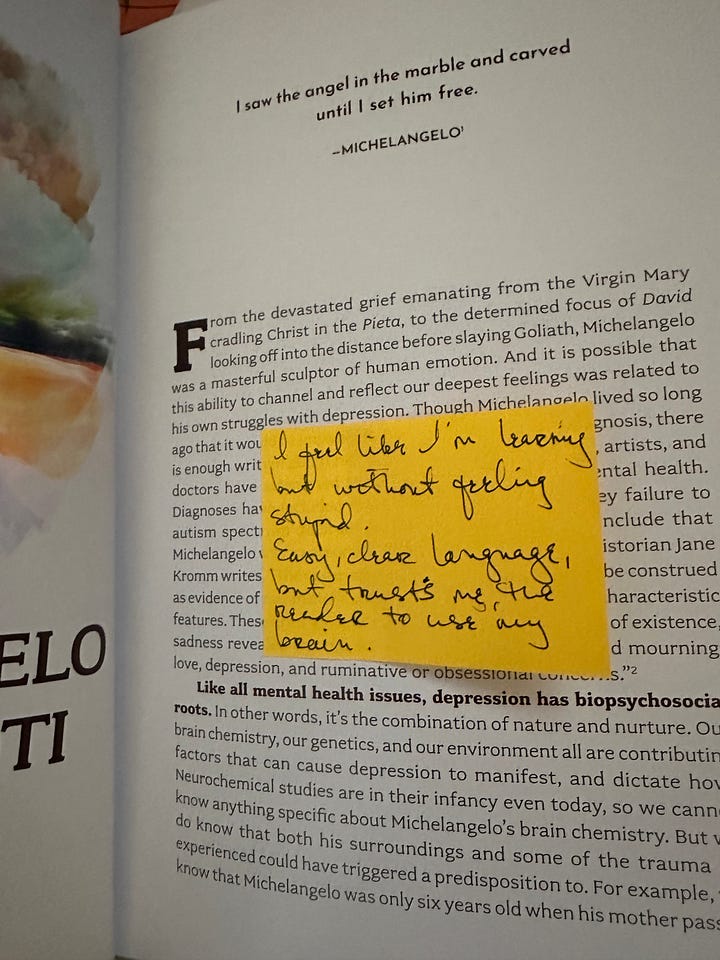 I saw the angel in the marble and carved
until I set him free.
–MICHELANGELO¹
ELO
TI
From the devastated grief emanating from the Virgin Mary
cradling Christ in the Pieta, to the determined focus of David
looking off into the distance before slaying Goliath, Michelangelo
was a masterful sculptor of human emotion. And it is possible that
this ability to channel and reflect our deepest feelings was related to
his own struggles with depression. Though Michelangelo lived so long
ago that it wou gnosis, there
is enough writ , artists, and
doctors have ental health.
Diagnoses ha ey failure to
autism spect nclude that
Michelangelo istorian Jane
Kromm writes be construed
as evidence of haracteristic
features. Thes of existence,
sadness revea d mourning
love, depression, and ruminative or obsessional s."²
I feel like I'm learning
but without feeling
stupid.
Easy, clear language,
but trusts me, the
reader to use my
brain.
Like all mental health issues, depression has biopsychosocia
roots. In other words, it's the combination of nature and nurture. Ou
brain chemistry, our genetics, and our environment all are contributin
factors that can cause depression to manifest, and dictate how
Neurochemical studies are in their infancy even today, so we cann
know anything specific about Michelangelo's brain chemistry. But w
do know that both his surroundings and some of the trauma
experienced could have triggered a predisposition to. For example,
know that Michelangelo was only six years old when his mother pass